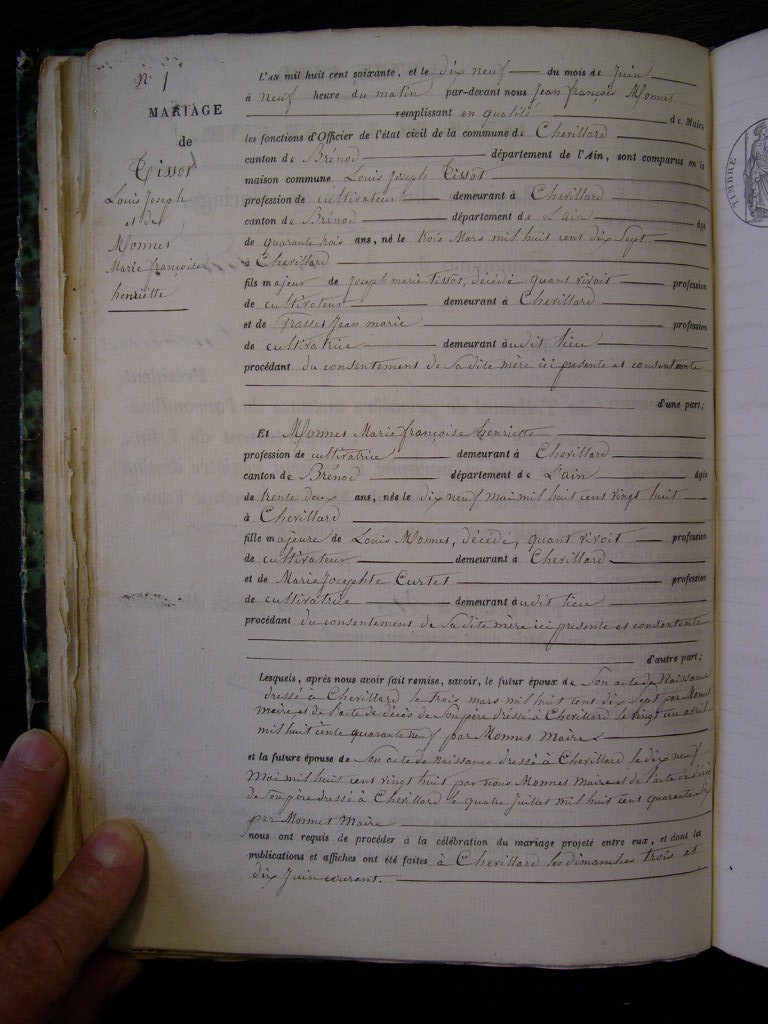 N.° 1
MARIAGE
de
Tissot
Louis Joseph
et de
Monnet
Marie françoise
henriette
L'AN mil huit cent soixante, et le dix neuf du mois de Juin
à neuf heure du matin par-devant nous Jean françois Monnet
remplissant en qualité de Maire
les fonctions d'Officier de l'état civil de la commune de Chevillard
canton de Brénod département de l'Ain, sont comparus en la
maison commune Louis Joseph Tissot
profession de cultivateur demeurant à Chevillard
canton de Brénod département de L'ain âgé
de quarante trois ans, né le trois Mars mil huit cent dix Sept
à Chevillard
fils majeur de Joseph marie Tissot, décédé, quant vivoit profession
de cultivateur demeurant à Chevillard
et de Jean marie profession
de cultivatrice demeurant audit lieu
procédant du consentement de Sa dite mère ici presente et consentente
d'une part;
Et Monnet Marie françoise henriette
profession de cultivatrice demeurant à Chevillard
canton de Brénod département de L'ain âgée
de trente deux ans, née le dix neuf mai mil huit cent vingt huit
à Chevillard
fille majeure de Louis Monnet, décédé, quant vivoit profession
de cultivateur demeurant à Chevillard
et de Marie Josephte Curtet profession
de cultivatrice demeurant audit lieu
procédant du consentement de Sa dite mère ici presente et consentente
d'autre part;
Lesquels, après nous avoir fait remise, savoir, le futur époux de Son acte de Naissance
dressé à Chevillard le trois mars mil huit cent dix Sept par Monnet
maire et de l'acte de décès de Son père dressé à Chevillard le vingt un avril
mil huit cente quarante neuf par Monnet Maire
et la future épouse de Son acte de Naissance dressé à Chevillard le dix neuf
Mai mil huit cent vingt huit par nous Monnet Maire et de l'acte de décès
de Son père dressé à Chevillard le quatre Juillet mil huit cent quarante
par Monnet Maire
nous ont requis de procéder à la célébration du mariage projeté entre eux, et dont les
publications et affiches ont été faites à Chevillard les dimanches trois et
dix Juin courant.
TIMBRE